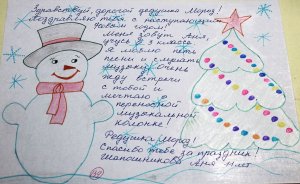 Здравствуй, дорогой дедушка Мороз!
Поздравляю тебя с наступающим
Новым годом!
Меня зовут Аня,
учусь в 3 классе.
Я люблю петь
песни и слушать
музыку. Очень
жду встречи
с тобой и
мечтаю о
переносной
музыкальной
колонке!
Дедушка Мороз!
Спасибо тебе за праздник!
Шапошникова Аня